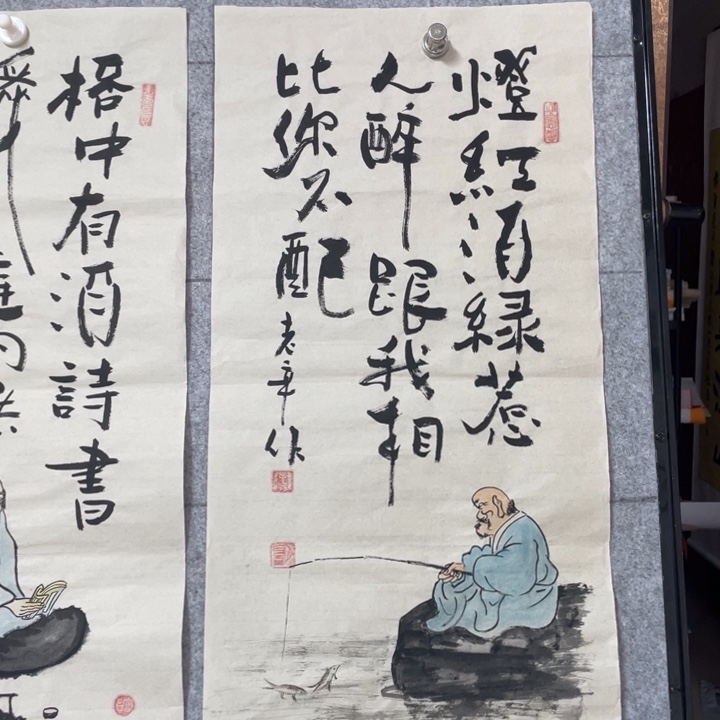 燈紅酒緑惹
人醉跟我相
比你不配
老章作
格中有酒詩書